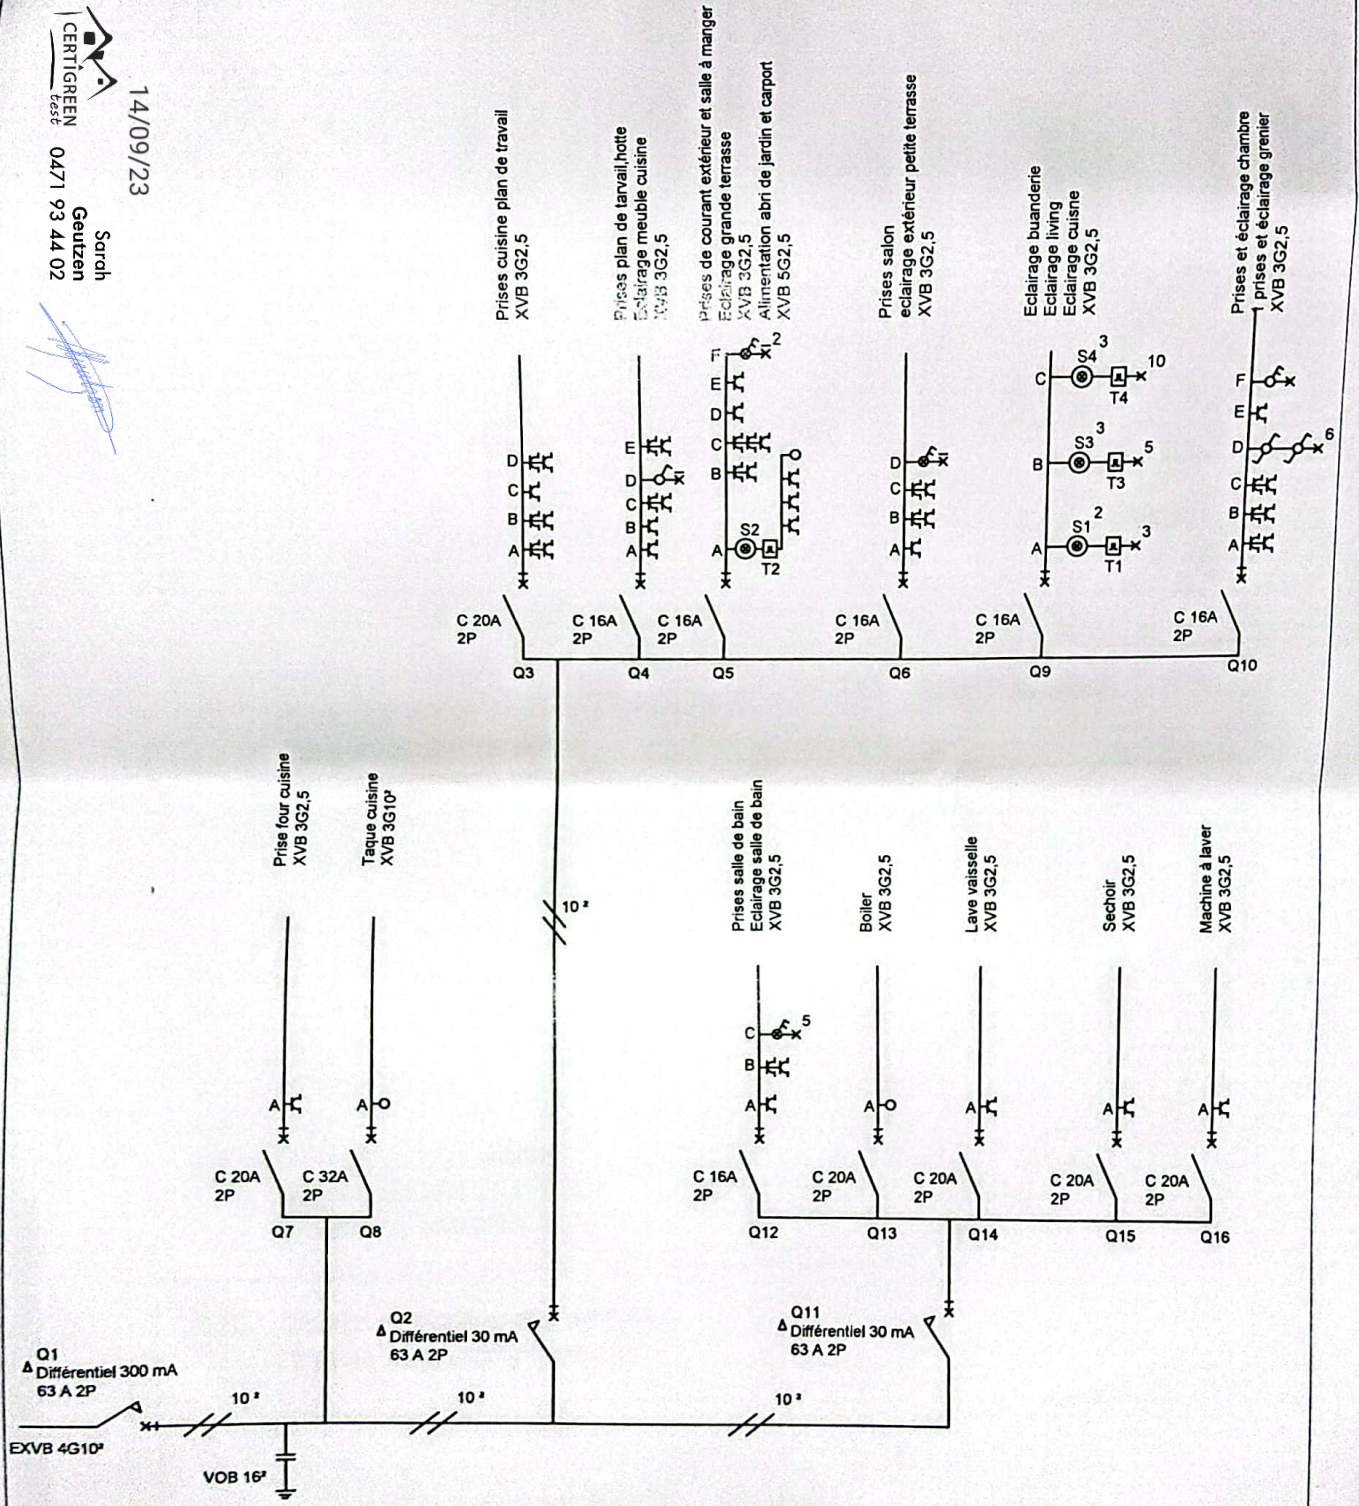 14/09/23
CERTIGREEN
test
Sarah
Geutzen
0471 93 44 02
Prises cuisine plan de travail
XVB 3G2,5
Prises plan de tarvail,hotte
Eclairage meuble cuisine
XVB 3G2,5
Prises de courant extérieur et salle à manger
Eclairage grande terrasse
XVB 3G2,5
Alimentation abri de jardin et carport
XVB 5G2,5
Prises salon
eclairage extérieur petite terrasse
XVB 3G2,5
Eclairage buanderie
Eclairage living
Eclairage cuisne
XVB 3G2,5
Prises et éclairage chambre
1 prises et éclairage grenier
XVB 3G2,5
D
C
B
A
E
D
C
B
A
F
2
E
D
C
B
A
S2
T2
D
C
B
A
C
S4
3
10
T4
B
S3
3
5
T3
A
S1
2
3
T1
F
E
D
6
C
B
A
C 20A
2P
C 16A
2P
C 16A
2P
C 16A
2P
C 16A
2P
C 16A
2P
Q3
Q4
Q5
Q6
Q9
Q10
10 ²
Prise four cuisine
XVB 3G2,5
Taque cuisine
XVB 3G10²
Prises salle de bain
Eclairage salle de bain
XVB 3G2,5
Boiler
XVB 3G2,5
Lave vaisselle
XVB 3G2,5
Sechoir
XVB 3G2,5
Machine à laver
XVB 3G2,5
A
A
C
5
B
A
A
A
A
A
C 20A
2P
C 32A
2P
C 16A
2P
C 20A
2P
C 20A
2P
C 20A
2P
C 20A
2P
Q7
Q8
Q12
Q13
Q14
Q15
Q16
Q1
Δ Différentiel 300 mA
63 A 2P
Q2
Δ Différentiel 30 mA
63 A 2P
Q11
Δ Différentiel 30 mA
63 A 2P
10 ²
10 ²
10 ²
EXVB 4G10²
VOB 16²